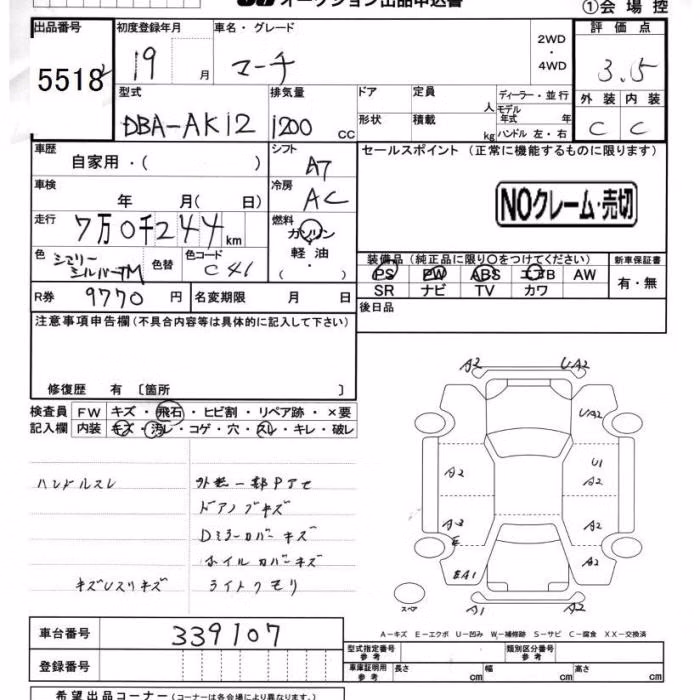 オークション出品申込書
①会場控
出品番号 初度登録年月 車名・グレード 2WD・4WD 評価点
5518 19 月 マーチ 3.5
型式 排気量 ドア 定員 人 ディーラー・並行 外装 内装
DBA-AK12 1200 cc 形状 積載 kg モデル年式 年 ハンドル 左・右 C C
車歴 シフト セールスポイント (正常に機能するものに限ります)
自家用・( ) A7
車検 冷房
年 月( 日) AC NOクレーム・売切
走行 燃料
7万0千244km ガソリン
色 色替 色コード 軽油 装備品(純正品に限り○をつけてください) 新車保証書
シルバーTM C41 ・( ) PS PW ABS エアB AW 有・無
SR ナビ TV カワ
R券 9770円 名変期限 月 日 後日品
注意事項申告欄(不具合内容等は具体的に記入して下さい)
修復歴 有〔箇所 〕
検査員 FW キズ・飛石・ヒビ割・リペア跡・×要
記入欄 内装 キズ・汚レ・コゲ・穴・スレ・キレ・破レ
A2 UA2
UA2
U1
A2 A2
A2 A2
E
A2
EA1
A1 A2
スペア
ハンドルスレ 外装一部Pアセ
ドアノブキズ
Dミラーカバーキズ
ホイルカバーキズ
キズUスリキズ ライトクモリ
A-キズ E-エクボ U-凹み W-補修跡 S-サビ C-腐食 XX-交換済
車台番号 339107
型式指定番号参考 類別区分番号参考
登録番号 車庫証明用参考 長さ cm 幅 cm 高さ cm
希望出品コーナー(コーナーは各会場により異なります。)